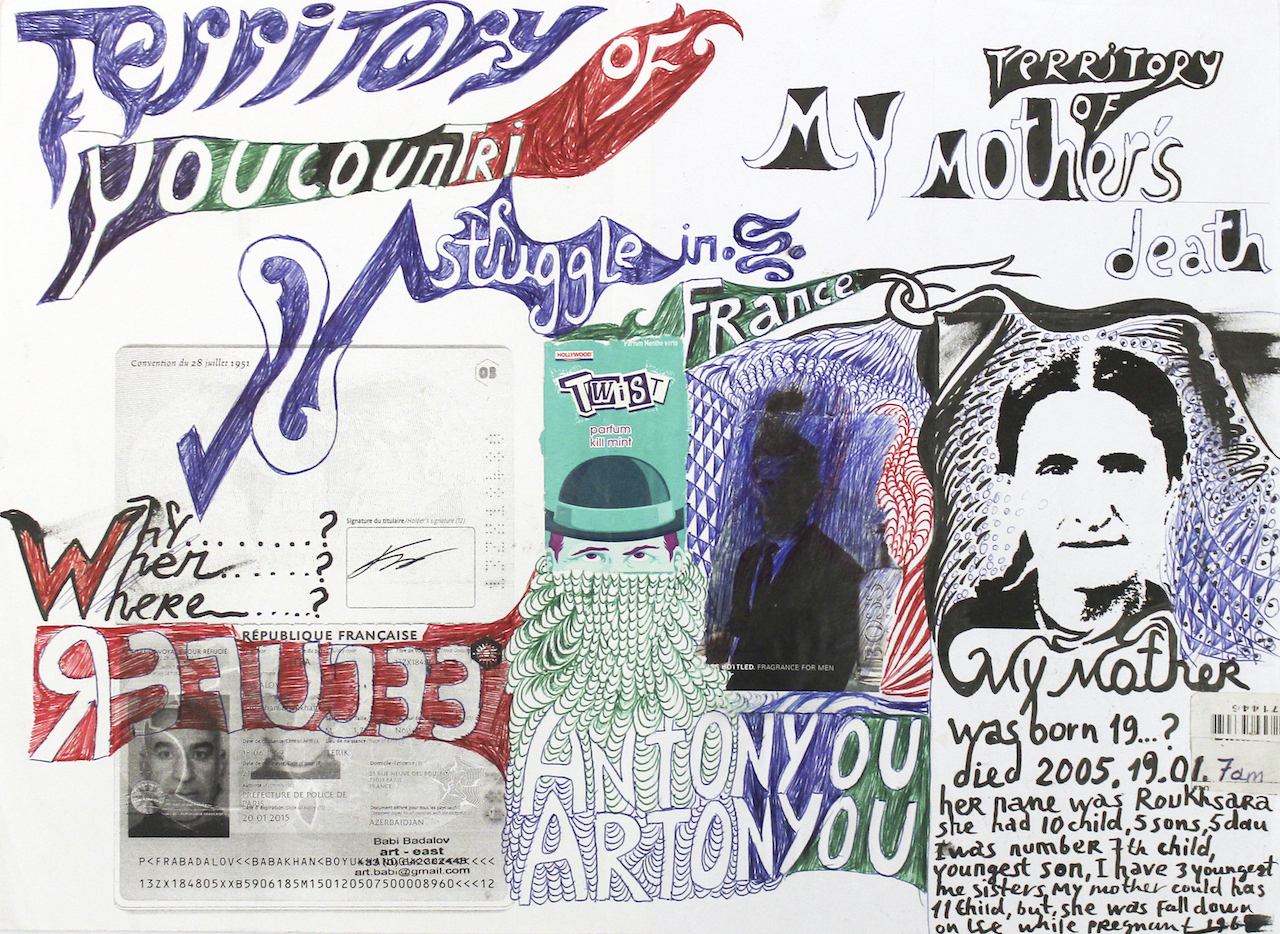 Territory
OF
YOUCOUNTRi
struggle in.S.
France
My
TERRiTORY
OF
MOther's
death
Convention du 28 juillet 1951
03
Why..........?
Wher......?
Where.....?
Signature du titulaire/Holder's signature (12)
RÉPUBLIQUE FRANÇAISE
REFUGEE
PREFECTURE DE POLICE DE
PARIS
20 01 2015
Domicile
FRANCE
AZERBAIDJAN
Babi Badalov
art - east
art.babi@gmail.com
13ZX184805XXB5906185M15012050750008960<<<12
HOLLYWOOD
Parfum Menthe verte
TWiST
parfum
kill mint
BOSS
BOTTLED. FRAGRANCE FOR MEN
ANtONYOU
ARTONYOU
My Mother
was born 19...?
died 2005. 19.01. 7am
her name was Roukhsara
she had 10 child, 5 sons, 5 dau
I was number 7th child,
youngest son, I have 3 youngest
me sisters, My mother could has
11 child, but, she was fall down
on ise while pregnant
71446